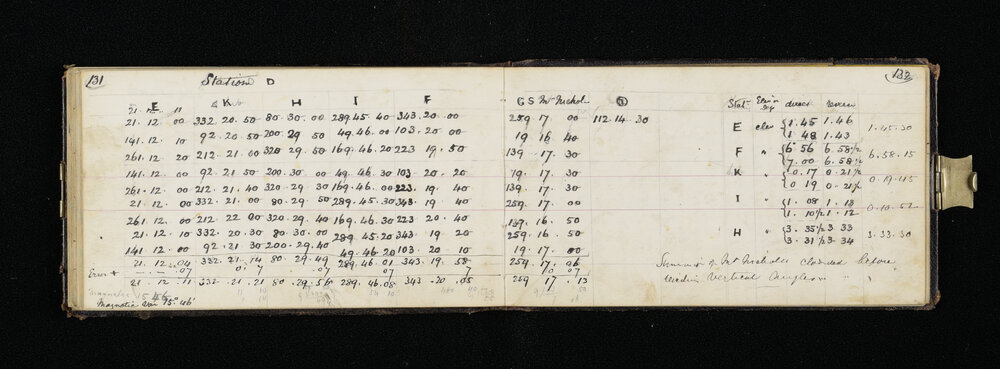 131
Station D
E K H I F
21. 12. 11
21. 12. 00 332. 20. 50 80. 30. 00 289. 45. 40 343. 20. 00
141. 12. 10 92. 20. 50 200. 29. 50 49. 46. 00 103. 20. 00
261. 12. 20 212. 21. 00 320. 29. 50 169. 46. 20 223. 19. 50
141. 12. 00 92. 21. 50 200. 30. 00 49. 46. 30 103. 20. 20
261. 12. 00 212. 21. 40 320. 29. 30 169. 46. 00 223. 19. 40
21. 12. 00 332. 21. 00 80. 29. 50 289. 45. 30 343. 19. 40
261. 12. 00 212. 22. 00 320. 29. 40 169. 46. 30 223. 20. 40
21. 12. 10 332. 20. 30 80. 30. 00 289. 45. 20 343. 19. 20
141. 12. 00 92. 21. 30 200. 29. 40 49. 46. 20 103. 20. 10
21. 12. 04 332. 21. 14 80. 29. 49 289. 46. 01 343. 19. 58
Error + 07 07 7 07 7
21. 12. 11 332. 21. 21 80. 29. 56 289. 46. 08 343. 20. 05
Magnetic Var 15° 46'
132
GS Mt Nichols D
259 17. 00 112. 14. 30
19 16 40
139. 17. 30
19. 17. 30
139. 17. 30
259. 17. 00
139. 16. 50
259. 16. 50
19. 17. 00
259. 17. 06
07
259 17. 13
Stat. direct
E ele 1. 45 1. 46
1. 48 1. 43 1. 45. 30
F " 6. 56 6. 58½
7. 00 6. 58½ 6. 58. 15
K " 0. 17 0. 21½
0 19 0. 21½ 0. 19. 45
I " 1. 08 1. 13
1. 10½ 1. 12 0. 10. 52
H " 3. 35½ 3. 33
3. 31½ 3. 34 3. 33. 30
Summit of Mt Nicholls clouded before
reading Vertical Angles